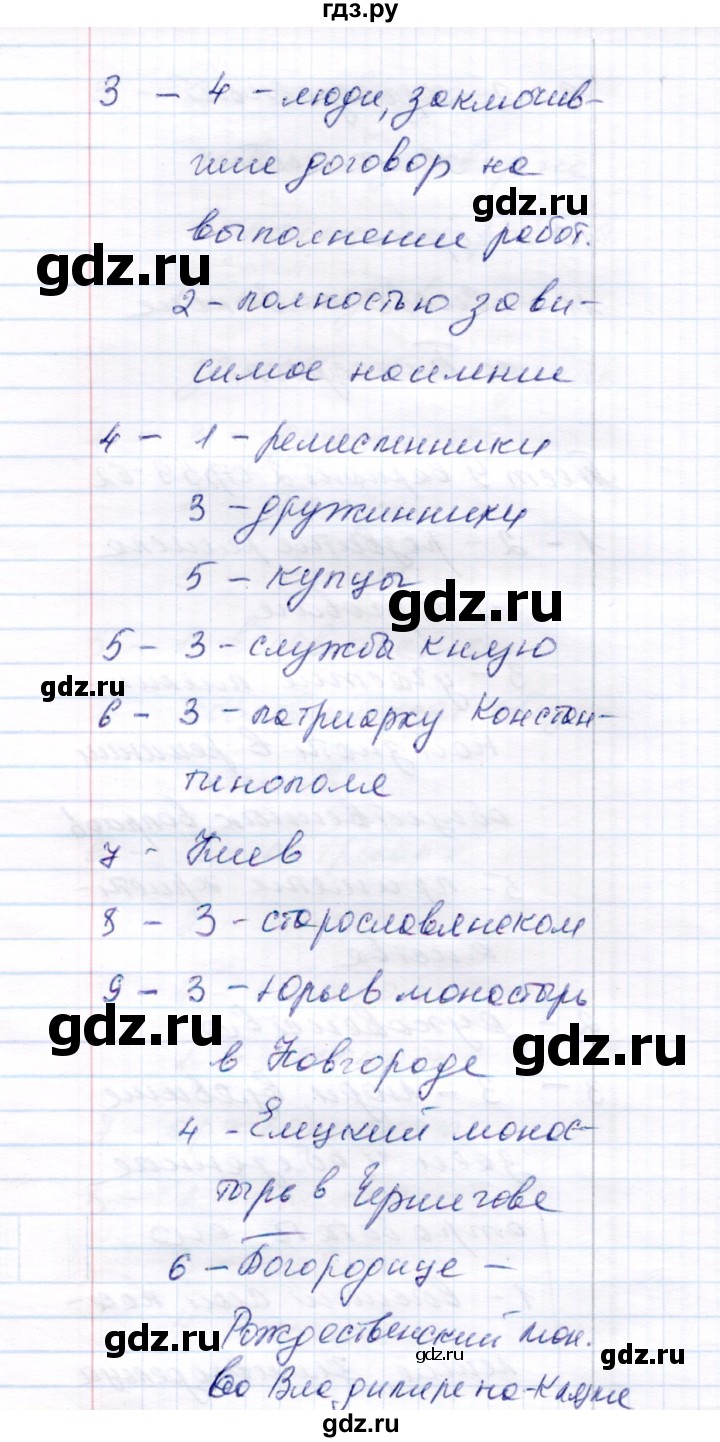 гдз.ру
3 – 4 – люди, заключив-
шие договор на
gdz.ru
выполнение работ.
gdz.ru
2 – полностью зави-
симое население
4 – 1 – ремесленники
3 – дружинники
5 – купцы
gdz.ru
5 – 3 – служба князю
gdz.ru
6 – 3 – патриарху Констан-
тинополя
7 – Киев
8 – 3 – старославянском
9 – 3 – Юрьев монастырь
gdz.ru
в Новгороде
gdz.ru
4 – Елецкий монас-
тырь в Чернигове
6 – Богородице –
Рождественский мон.
gdz.ru
gdz.ru
gdz.ru
во Владимире на-Клязме
gdz.ru